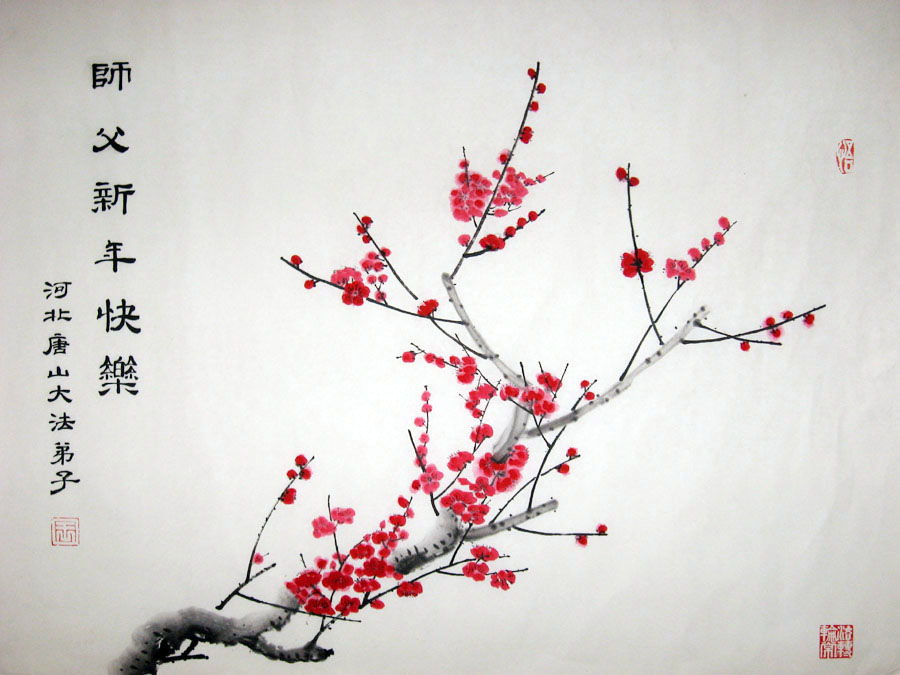 師父新年快樂
河北唐山大法弟子